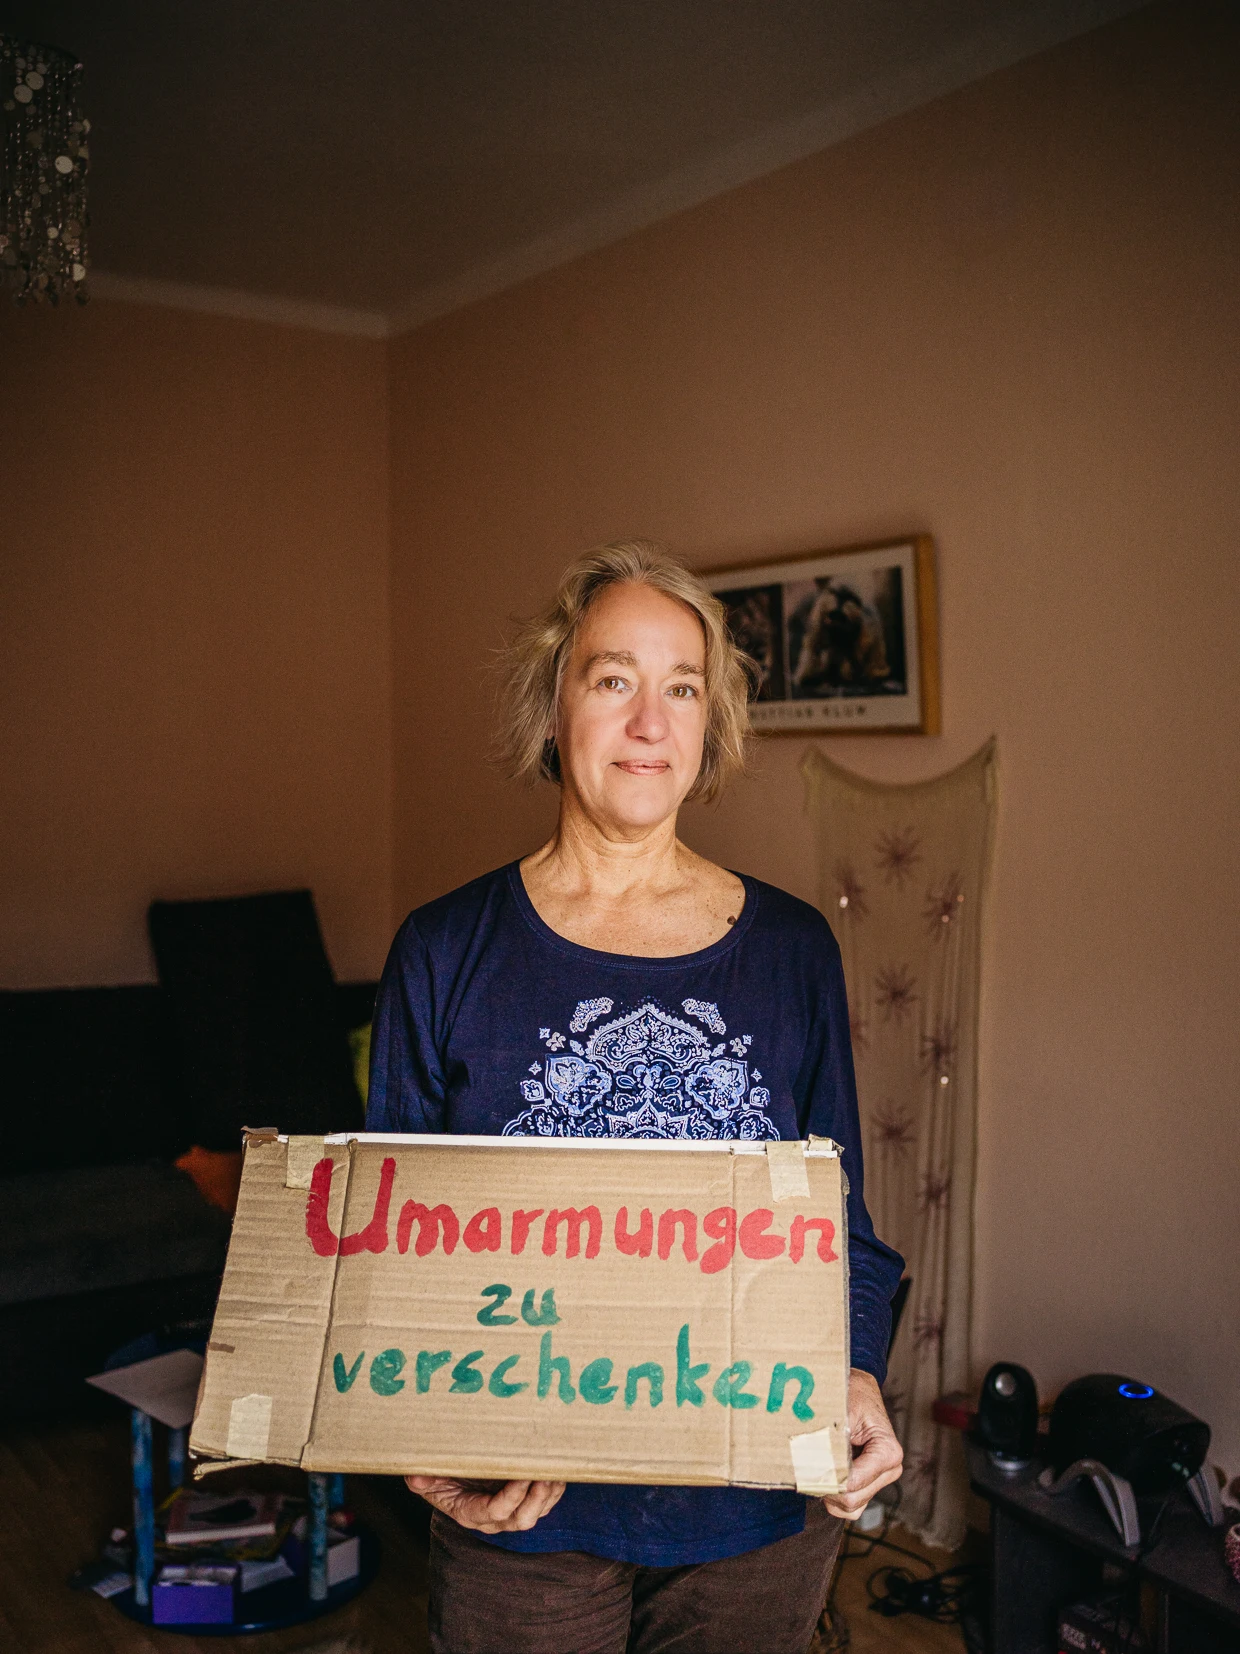 Umarmungen
zu
verschenken